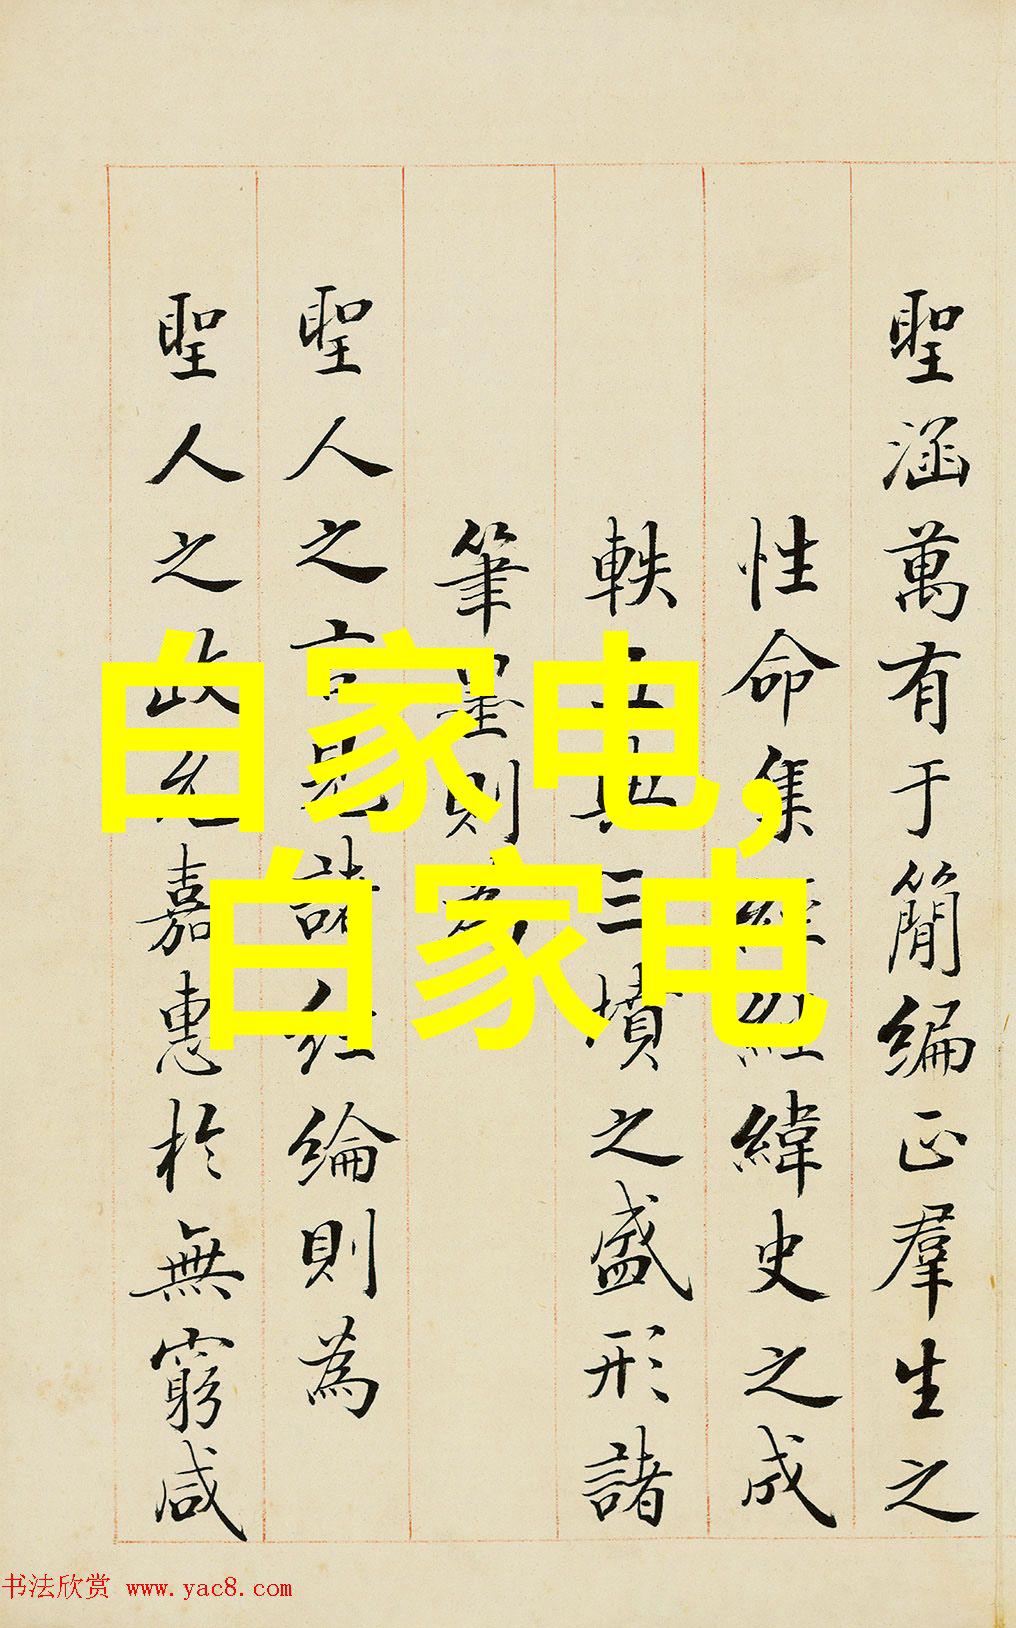 聖涵萬有于簡編正羣生之
性命集經經緯史之成
軼五典三墳之盛形諸
筆墨則為
聖人之言見諸經綸則為
聖人之故先嘉惠於無窮咸
白家电,
白家电
书法欣赏 www.yac8.com